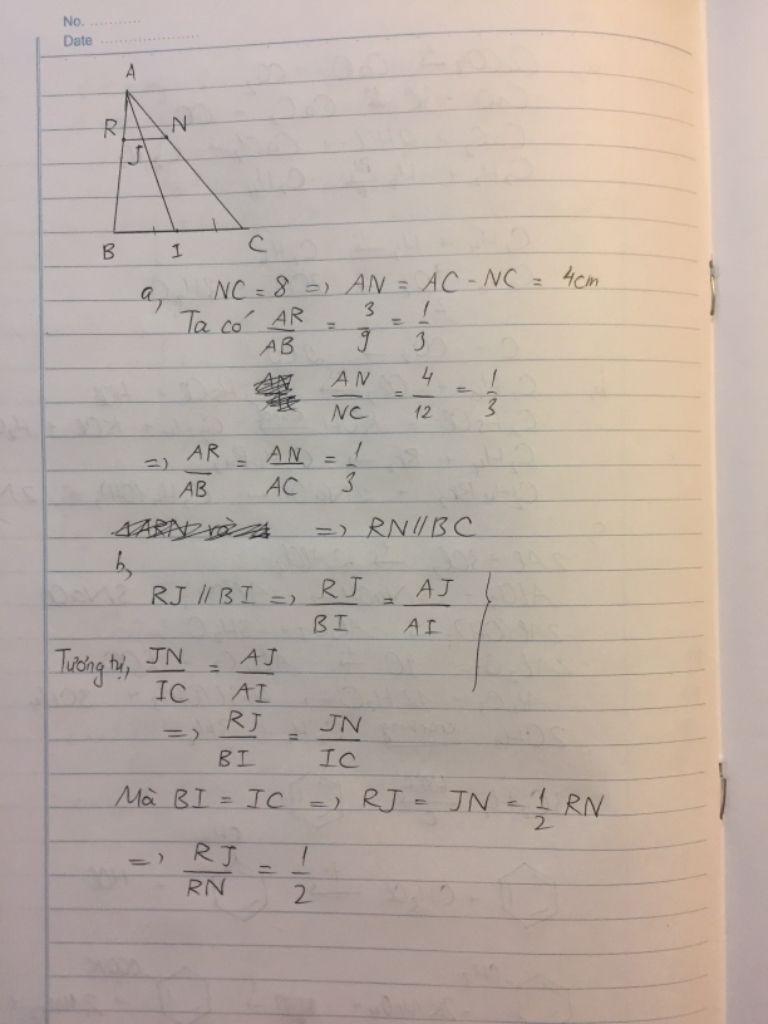 No. ............
Date ......................
A
R N
J
B I C
a, NC = 8 => AN = AC - NC = 4cm
Ta có AR/AB = 3/9 = 1/3
AN/NC = 4/12 = 1/3
=> AR/AB = AN/AC = 1/3
=> RN//BC
b,
RJ // BI => RJ/BI = AJ/AI }
Tương tự, JN/IC = AJ/AI
=> RJ/BI = JN/IC
Mà BI = IC => RJ = JN = 1/2 RN
=> RJ/RN = 1/2